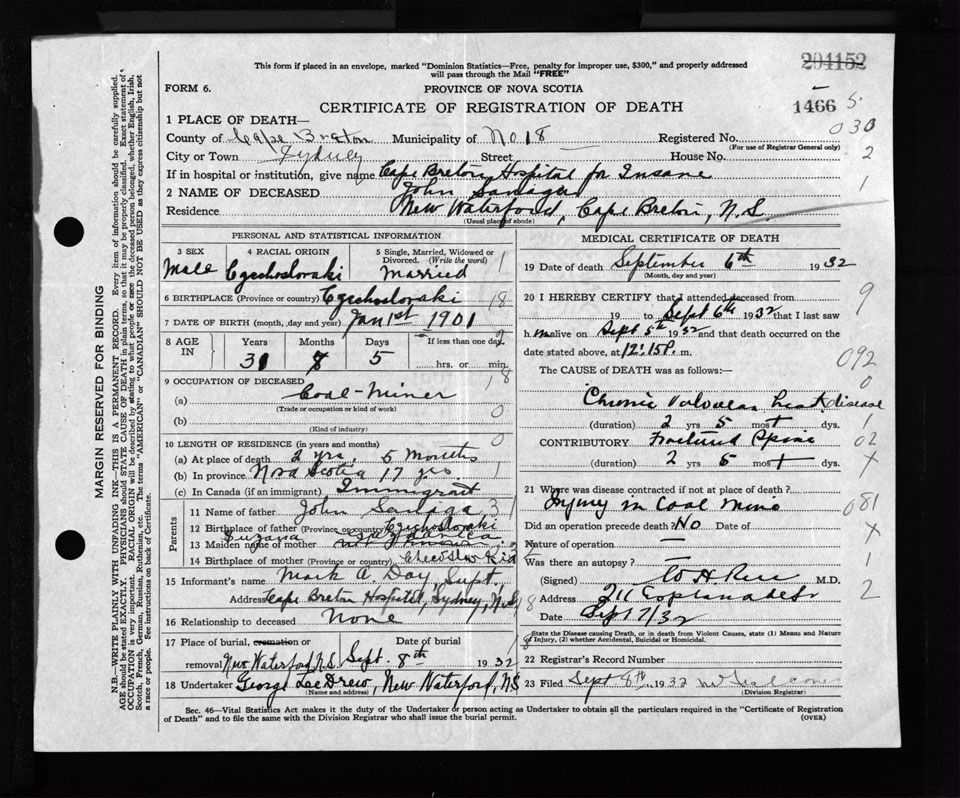 This form if placed in an envelope, marked "Dominion Statistics—Free, penalty for improper use, $300," and properly addressed
will pass through the Mail "FREE"
204152
FORM 6.
PROVINCE OF NOVA SCOTIA
CERTIFICATE OF REGISTRATION OF DEATH
1466 5
030
1 PLACE OF DEATH—
County of Cape Breton Municipality of No 18 Registered No.
(For use of Registrar General only)
City or Town Sydney Street — House No. 2
If in hospital or institution, give name Cape Breton Hospital for Insane
2 NAME OF DECEASED John 1
Residence New Waterford, Cape Breton, N.S.
(Usual place of abode)
PERSONAL AND STATISTICAL INFORMATION
3 SEX 4 RACIAL ORIGIN 5 Single, Married, Widowed or
Divorced. (Write the word)
Male Czechoslovaki Married 1
6 BIRTHPLACE (Province or country) Czechoslovaki 18
7 DATE OF BIRTH (month, day and year) Jan 1st 1901
8 AGE IN Years Months Days If less than one day
31 8 5 hrs. or min.
9 OCCUPATION OF DECEASED
(a) Coal-Miner
(Trade or occupation or kind of work)
(b)
(Kind of industry)
10 LENGTH OF RESIDENCE (in years and months)
(a) At place of death 2 yrs, 5 months
(b) In province Nova Scotia 17 yrs
(c) In Canada (if an immigrant) Immigrant
Parents
11 Name of father John
12 Birthplace of father (Province or country) Czechoslovaki
13 Maiden name of mother Suzana
14 Birthplace of mother (Province or country)
15 Informant's name Mark A. Day, Supt.
Address Cape Breton Hospital, Sydney, N.S.
16 Relationship to deceased None
17 Place of burial, cremation or removal Date of burial
New Waterford N.S. Sept. 8th 1932
18 Undertaker George, New Waterford, N.S.
(Name and address)
MEDICAL CERTIFICATE OF DEATH
19 Date of death September 6th 1932
(Month, day and year)
20 I HEREBY CERTIFY that I attended deceased from
19 to Sept 6th 1932 that I last saw
h im alive on Sept 5th 1932 and that death occurred on the
date stated above, at 12:15 P. m.
The CAUSE of DEATH was as follows:—
Chronic Valvular heart disease
(duration) 2 yrs 5 mos dys.
CONTRIBUTORY Fractured Spine
(duration) 2 yrs 5 mos dys.
21 Where was disease contracted if not at place of death?
Injury in Coal Mine
Did an operation precede death? No Date of
Nature of operation —
Was there an autopsy? —
(Signed) W H Rice M.D.
Address 211 Esplanade St
Sept 7/32
State the Disease causing Death, or in death from Violent Causes, state (1) Means and Nature
of Injury, (2) whether Accidental, Suicidal or Homicidal.
22 Registrar's Record Number
23 Filed Sept 8th 1932
(Division Registrar)
9
092
0
1
02
081
2
Sec. 46—Vital Statistics Act makes it the duty of the Undertaker or person acting as Undertaker to obtain all the particulars required in the "Certificate of Registration
of Death" and to file the same with the Division Registrar who shall issue the burial permit.
(OVER)
MARGIN RESERVED FOR BINDING
N.B.—WRITE PLAINLY WITH UNFADING INK—THIS IS A PERMANENT RECORD. Every item of information should be carefully supplied.
AGE should be stated EXACTLY. PHYSICIANS should STATE CAUSE OF DEATH in plain terms, so that it may be properly classified. Exact statement of
OCCUPATION is very important. RACIAL ORIGIN will be described by stating to what people or race the deceased person belonged, whether English, Irish,
Scotch, French, German, Russian, Ruthenian, etc. The terms "AMERICAN" or "CANADIAN" SHOULD NOT BE USED as they express citizenship but not
a race or people. See instructions on back of Certificate.